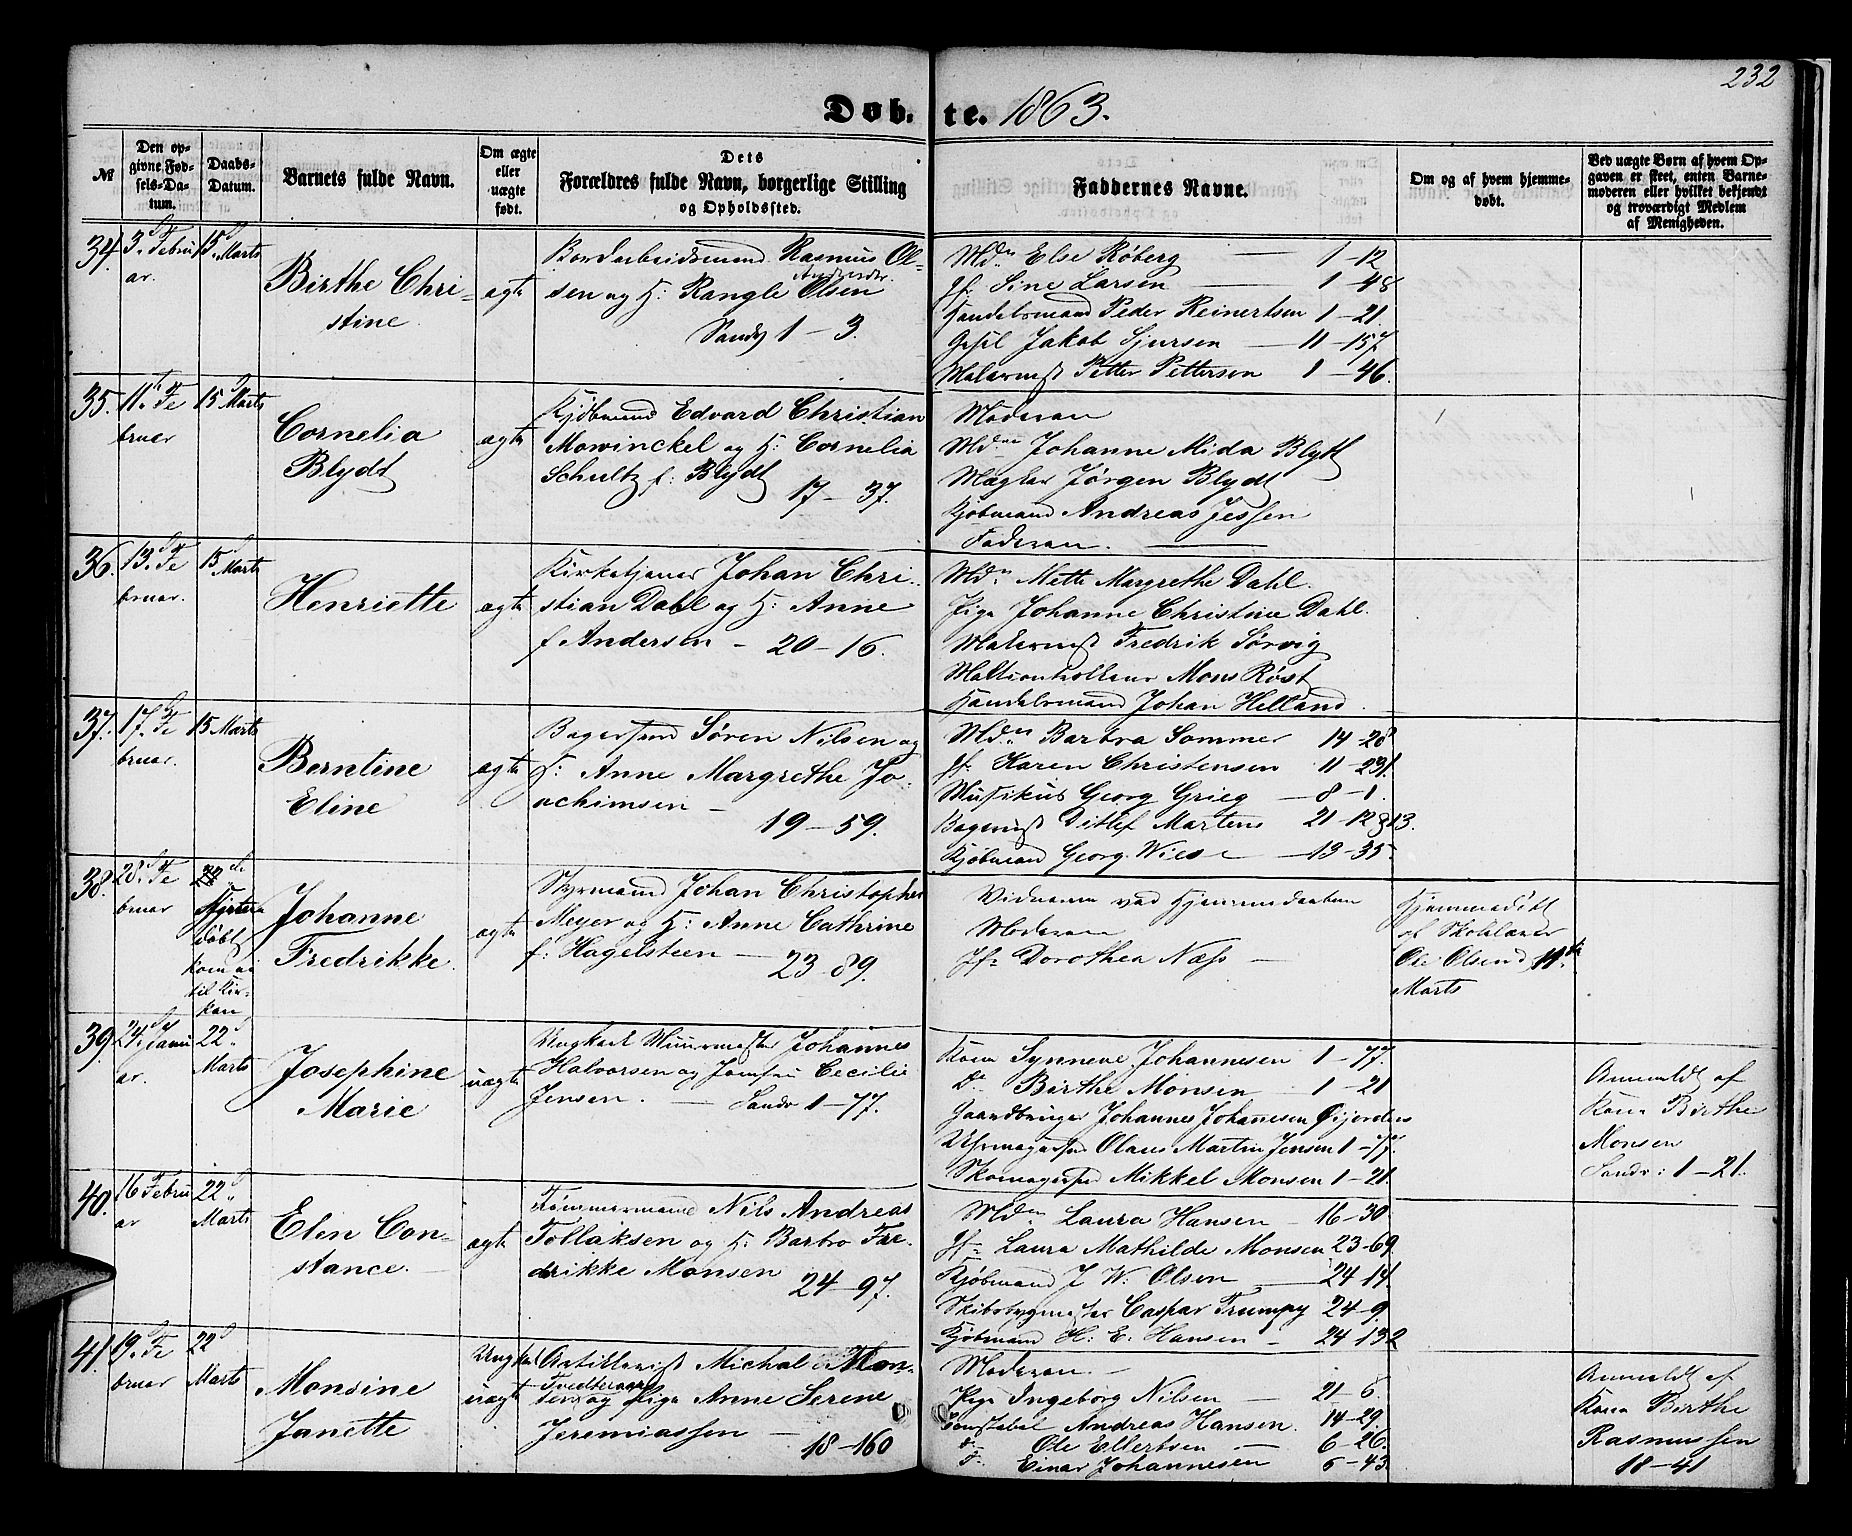 232
Døb-te. 1863.
№
Den opgivne Fødsels-Datum.
Daabs-Datum.
Barnets fulde Navn.
Om ægte eller uægte født.
Dets Forældres fulde Navn, borgerlige Stilling og Opholdssted.
Faddernes Navne.
Om og af hvem hjemmedøbt.
Ved uægte Børn af hvem Opgaven er skeet, enten Barnemoderen eller hvilket bekjendt og troværdigt Medlem af Menigheden.
34. 3d Februar. 15d Marts
Birthe Christine
ægte
Bordarbeidsmand Rasmus Olsen og H: Rangle Olsen
Sandv 1 - 3.
Mdm Else Røberg 1-12
Jf. Sine Larsen 1-48
Handelsmand Peder Reinertsen 1-21
Jakob Sjursen 11-157
Malermst Petter Pettersen 1-46.
35. 11te Februar 15 Marts
Cornelia
Blydt
ægte
Kjøbmand Edvard Christian
Mowinckel og H: Cornelia
Schultz f: Blydt 17 - 37.
Moderen
Mdme Johanne Mida Blytt
Mægler Jørgen Blydt
Kjøbmand Andreas Jessen
Faderen.
36. 13d Februar. 15d Marts
Henriette
ægte
Kirketjener Johan Christian Dahl og H: Anne
f Andersen - 20-16.
Mdm Mette Margrethe Dahl.
Pige Johanne Christine Dahl.
Malermst Fredrik Sørvig
Mons Røst
Handelsmand Johan Helland
37. 17d Februar. 15 Marts
Berntine
Eline
ægte
Bagersvend Søren Nilsen og
H: Anne Margrethe Jochimsen
19-59.
Mdm Barbra Sommer 14-28
Jf. Karen Christensen 11-231.
Musikus Georg Grieg 8-1.
Bagermst Ditlef Martens 21-12 & 13.
Kjøbmand Georg Wiese 13-35
38. 28d Februar
døbt
kom ei
til Kirken
Johanne
Fredrikke.
ægte
Styrmand Johan Christopher
Meyer og H: Anne Cathrine
f. Hagelsteen 23-89.
Vidnerne ved Hjemmedaaben
Moderen
Jfr Dorothea Næss
Hjemmedøbt
af Skolelærer
Ole Olsen d 11te
Marts
39. 24d Januar. 22d Marts
Josephine
Marie
uægte
Ungkarl Muurmester Johannes
Halvorsen og Jomfru Cecilie
Jensen. Sandv 1-77.
Kone Synneve Johannesen 1-77.
Do Birthe Monsen 1-21
Gaardbruger Johannes Johanesen
Olaus Martin Jensen 1-77.
Skomagersvd Mikkel Monsen 1-21.
Anmeldt af
Kone Birthe
Monsen
Sandv: 1-21.
40. 16 Februar 22d Marts
Elen Constance.
ægte
Tømmermand Nils Andreas
Tollaksen og H: Barbro Fredrikke Monsen 24-97.
Mdm Laura Hansen 16-30
Jfr Laura Mathilde Monsen 23-69
Kjøbmand J W: Olsen 24-14
Skibsbygmester Caspar Trumpy 24-9
Kjøbmand H: E: Hansen 24-132
41. 19d Februar 22d Marts
Monsine
Janette
Ungkarl
uægte
Artillerist Michal
og Pige Anne Serene
Jeremiassen 18-160
Moderen
Pige Ingeborg Nilsen 21-6
Konstabel Andreas Hansen. 14-29.
do Ole Ellertsen 6-26.
Einar Johannesen 6-43
Anmeldt af
Kone Birthe
Rasmussen
18-41